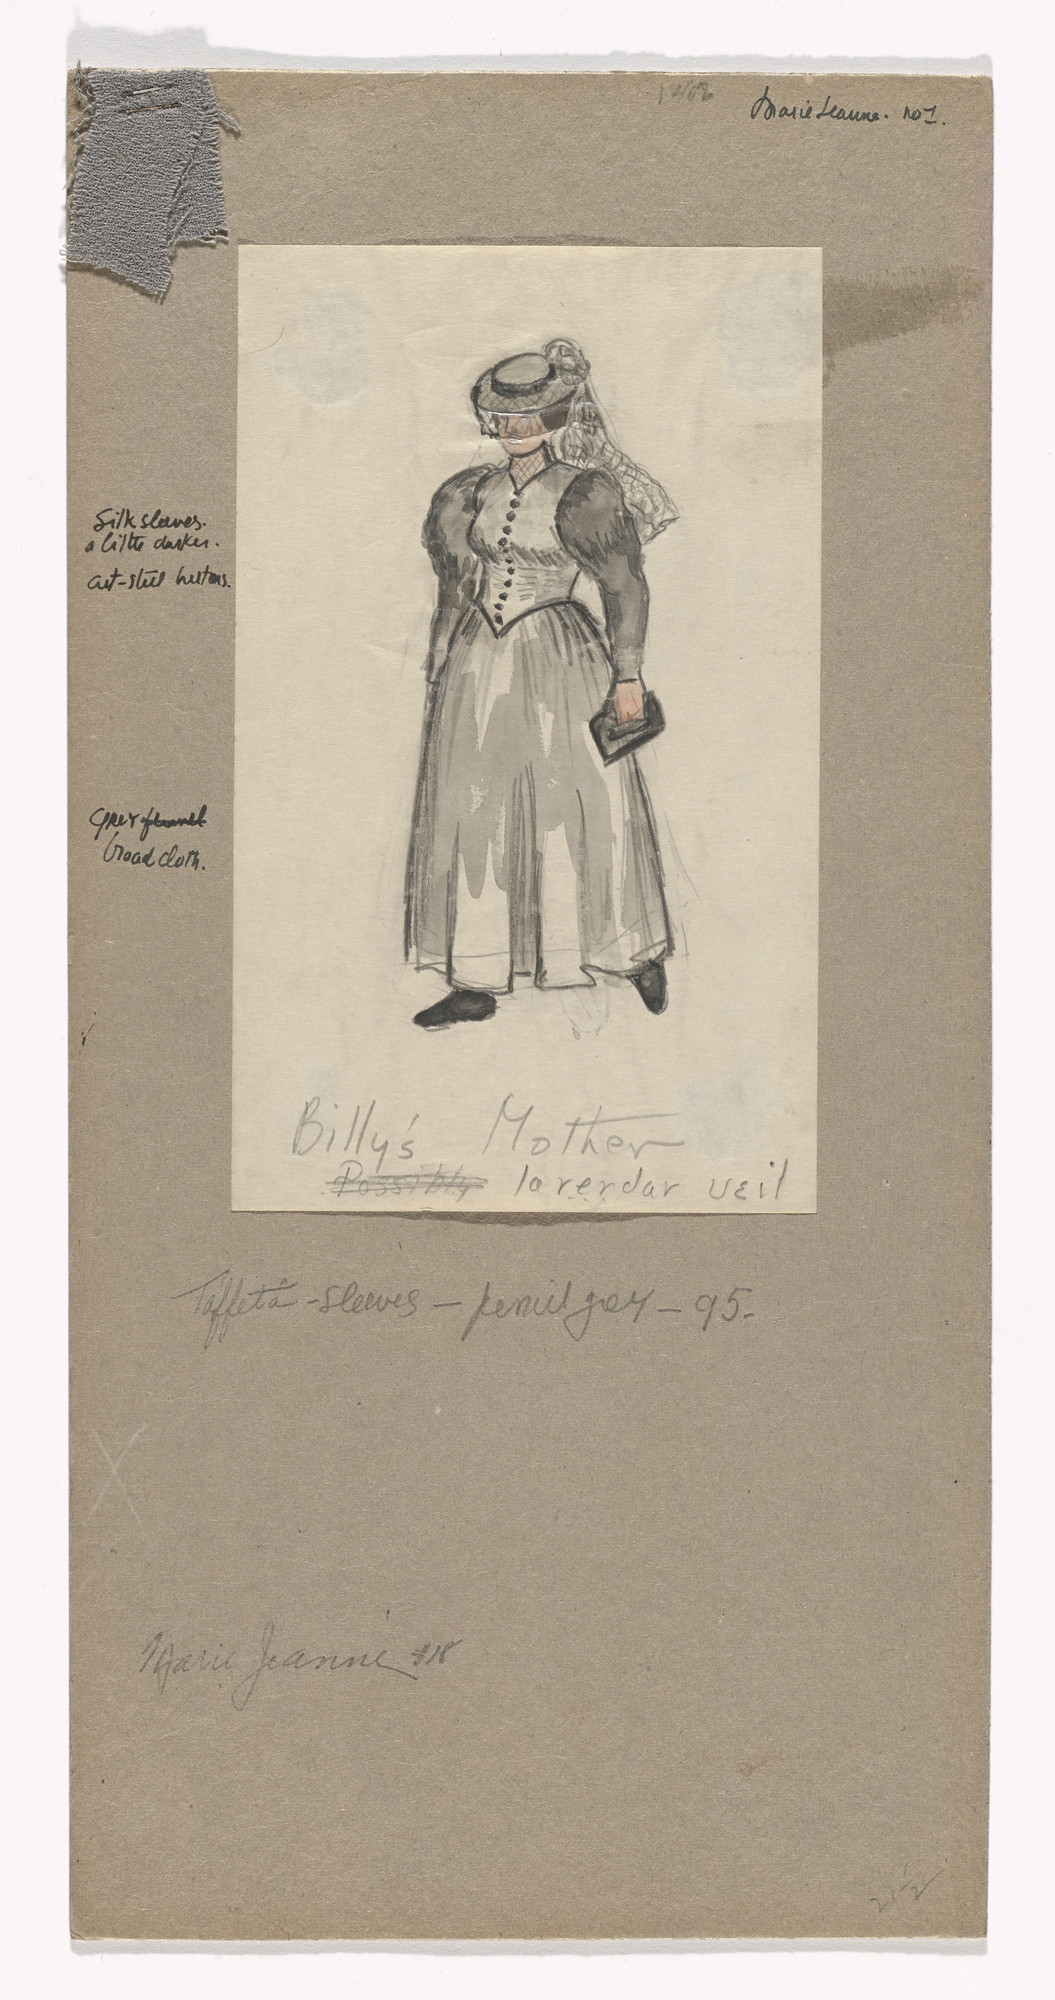 Marie Jeanne. no 1.
Silk sleeves.
a little darker.
cut-steel buttons.
Grey flannel
broadcloth.
Billy's Mother
Possibly lavendar veil
Taffeta-sleeves - pencil grey - 95.
Marie Jeanne #18